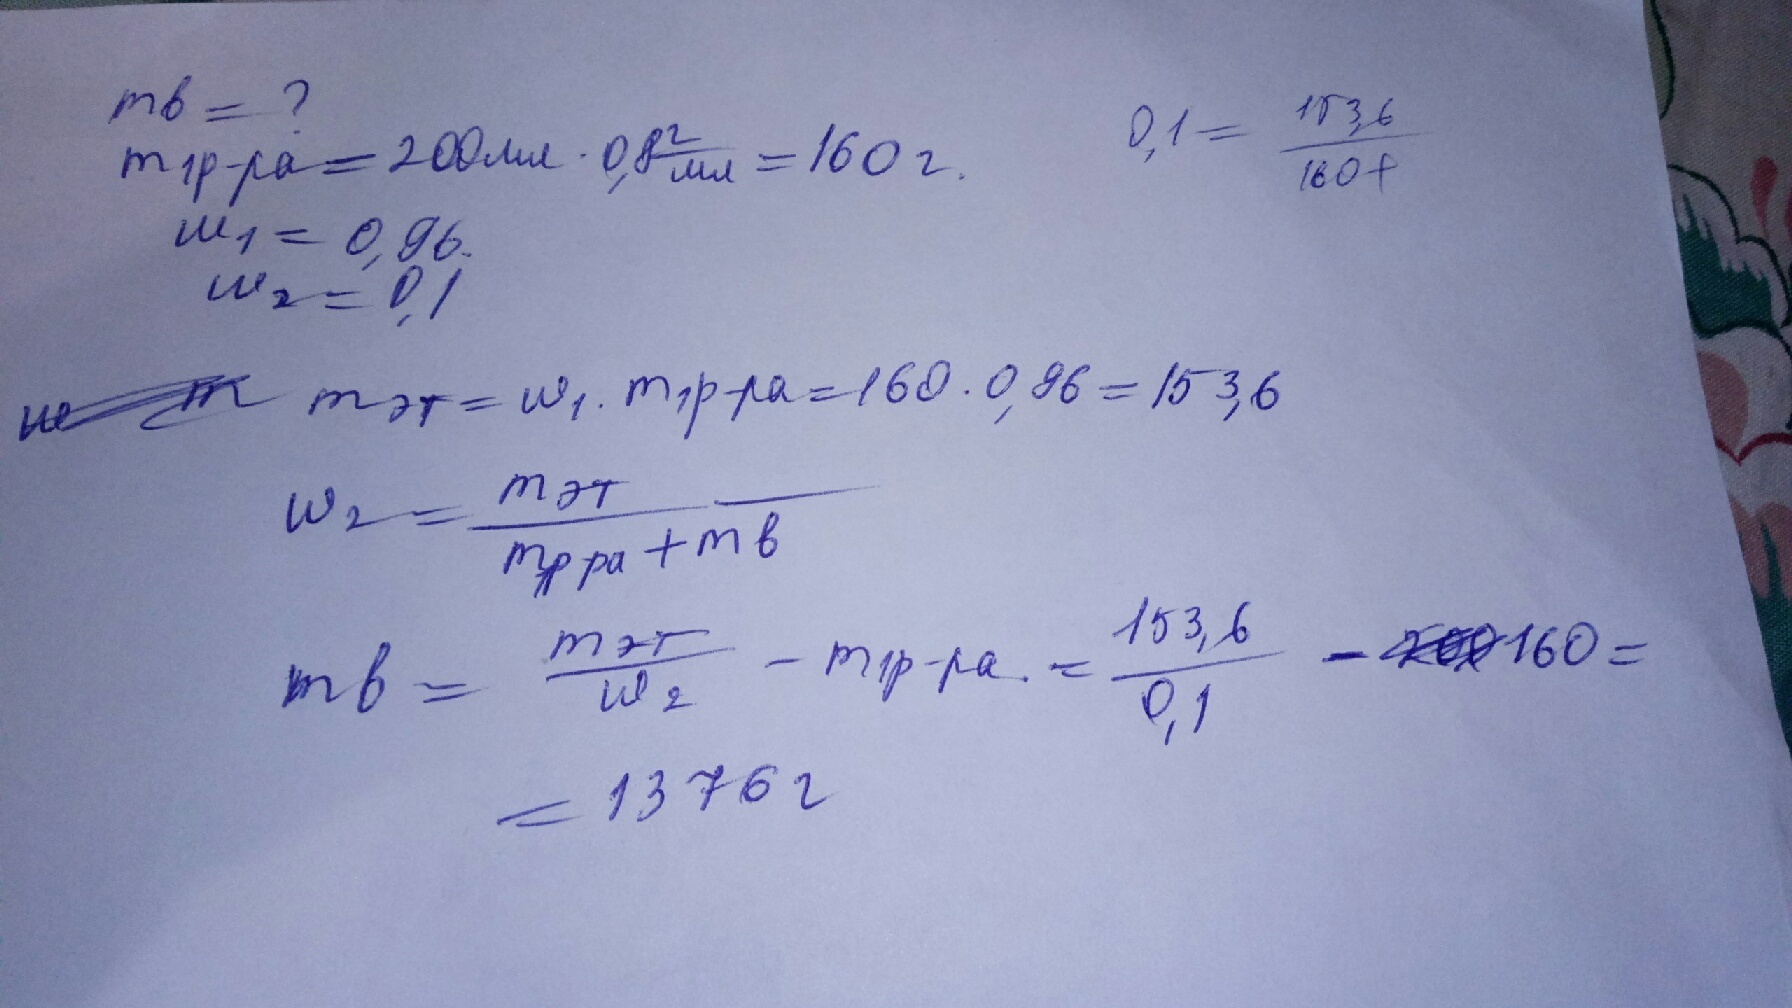 mв = ?
m1р-ра = 200мл · 0,8 г/мл = 160 г.
0,1 = 153,6 / 160+
w1 = 0,96.
w2 = 0,1
mэт = w1 · m1р-ра = 160 · 0,96 = 153,6
w2 = mэт / m1р ра + mв
mв = mэт / w2 - m1р-ра. = 153,6 / 0,1 - 160 =
= 1376 г